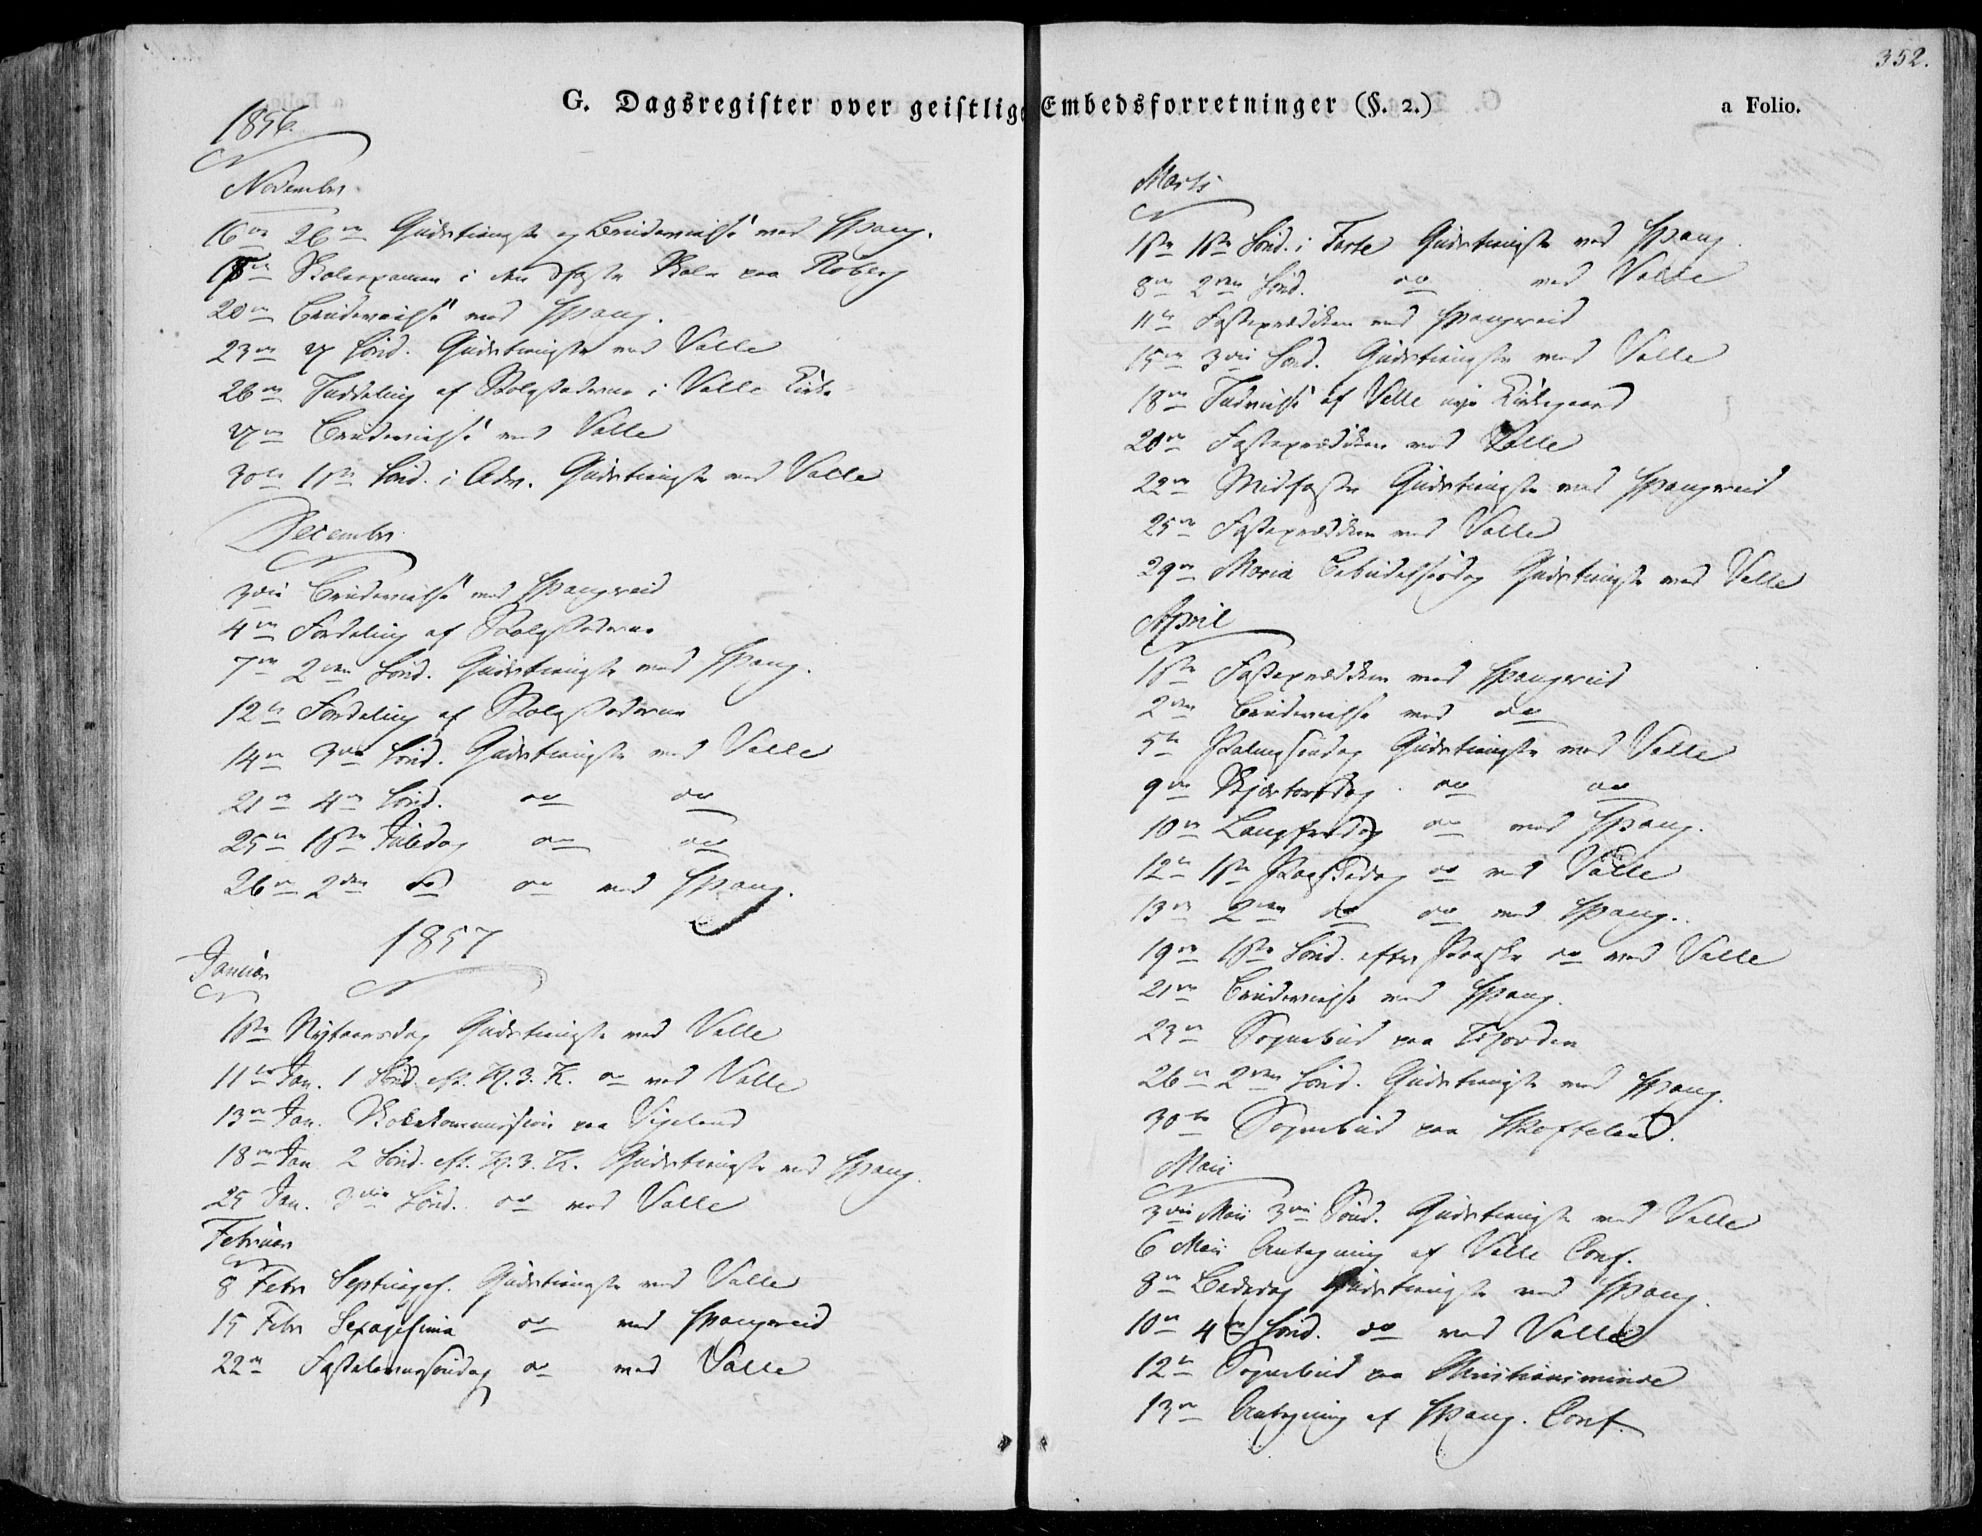 352.
G. Dagsregister over geistlige Embedsforretninger (§. 2.)
a Folio.
1856.
November
16de 26de Gudstieneste og Brudevielse ved Spang.
18de Skoleexamen i den faste Skole paa Roberg
20de Brudevielse ved Spang.
23de 27 Sønd. Gudstieneste ved Valle
26de Inddeling af Stolestaderne i Valle Kirke
27de Brudevielse ved Valle
30te 1ste Sønd. i Adv. Gudstieneste ved Valle
December
3die Brudevielse ved Spangereid
4de Fordeling af Stolestaderne
7de 2den Sønd. Gudstieneste ved Spang.
12te Fordeling af Stolestaderne
14de 3die Sønd. Gudstieneste ved Valle
21de 4de Sønd. do do
25de 1ste Juledag do do
26de 2den do do ved Spang.
1857
Januar
1ste Nytaarsdag Gudstieneste ved Valle
11te Jan. 1 Sønd. eft. H. 3. K. do ved Valle
13de Jan. Skolekommission paa Vigeland
18de Jan 2 Sønd. eft. H. 3. K. Gudstieneste ved Spang.
25 Jan. 3die Sønd. do ved Valle
Februar
8 Febr Septuages. Gudstieneste ved Valle
15 Febr Sexagesima do ved Spangereid
22de Fastelavnssøndag do ved Valle
Marts
1ste 1ste Sønd. i Faste Gudstieneste ved Spang.
8de 2den Sønd. do ved Valle
11te Fasteprædiken ved Spangereid
15de 3die Sønd. Gudstieneste ved Valle
18de Indvielse af Valle nye Kirkegaard
20de Fasteprædiken ved Valle
22de Midfaste Gudstieneste ved Spangereid
25de Fasteprædiken ved Valle
29de Maria Bebudelsesdag Gudstieneste ved Valle
April
1ste Fasteprædiken ved Spangereid
2den Brudevielse ved do
5te Palmesøndag Gudstieneste ved Valle
9de Skjærtorsdag do do
10de Langfredag do ved Spang.
12te 1ste Paaskedag do ved Valle
13de 2den do do ved Spang.
19de 1ste Sønd. efter Paaske do ved Valle
21de Brudevielse ved Spang.
23de Sognebud paa
26de 2den Sønd. Gudstieneste ved Spang.
30te Sognebud paa Skofteland.
Mai
3die Mai 3die Sønd. Gudstieneste ved Valle
6 Mai Antegning af Valle Conf.
8de Bededag Gudstieneste ved Spang.
10de 4de Sønd. do ved Valle
12te Sognebud paa Christiansminde
13de Antegning af Spang. Conf.